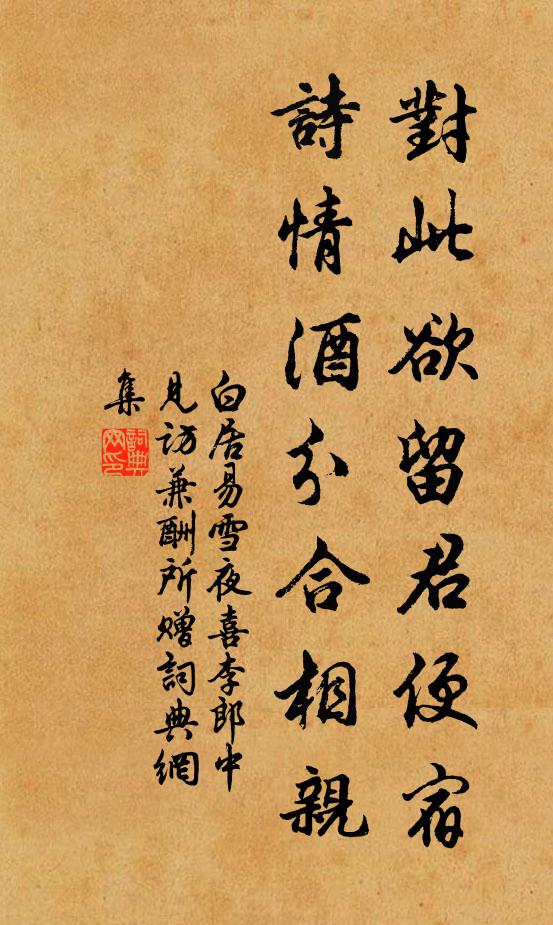 對此欲留君便宿
詩情酒分合相親
白居易雪夜喜李郎中
見訪兼酬所贈詞典網
集
詞典網印